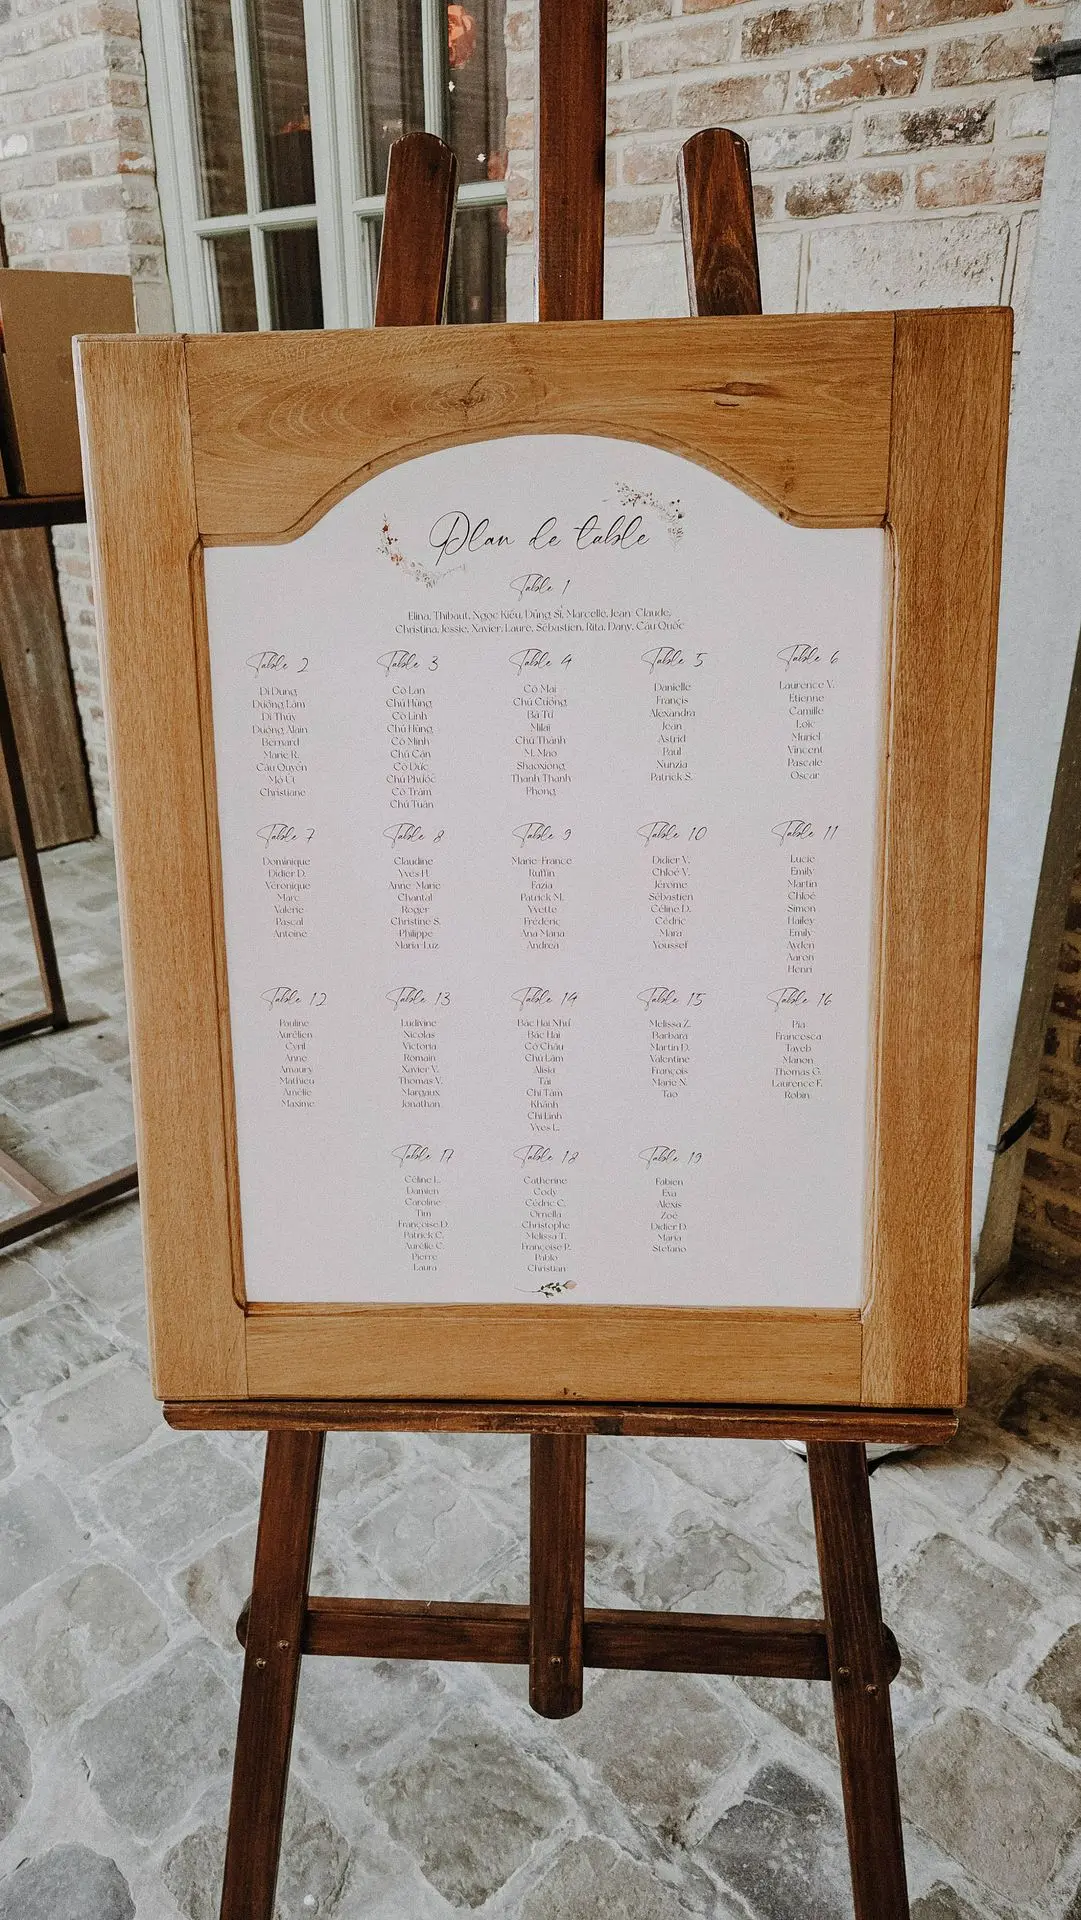 Plan de table
Table 1
Elina, Thibaut, Ngọc Kiều, Dũng Sĩ, Marcelle, Jean-Claude,
Christina, Jessie, Xavier, Laure, Sébastien, Rita, Dany, Cậu Quốc
Table 2
Dì Dung
Dượng Lâm
Dì Thủy
Dượng Alain
Bernard
Marie R.
Cậu Quyền
Mợ Út
Christiane
Table 3
Cô Lan
Chú Hùng
Cô Linh
Chú Hùng
Cô Minh
Chú Cần
Cô Đức
Chú Phước
Cô Trâm
Chú Tuấn
Table 4
Cô Mai
Chú Cường
Bà Tư
Milaï
Chú Thành
M. Mao
Shaoxiong
Thanh Thanh
Phong
Table 5
Danielle
Françis
Alexandra
Jean
Astrid
Paul
Nunzia
Patrick S.
Table 6
Laurence V.
Etienne
Camille
Loïc
Muriel
Vincent
Pascale
Oscar
Table 7
Dominique
Didier D.
Véronique
Marc
Valérie
Pascal
Antoine
Table 8
Claudine
Yves H.
Anne-Marie
Chantal
Roger
Christine S.
Philippe
Maria-Luz
Table 9
Marie-France
Ruffin
Fazia
Patrick M.
Yvette
Frédéric
Ana Maria
Andrea
Table 10
Didier V.
Chloé V.
Jérôme
Sébastien
Céline D.
Cédric
Mara
Youssef
Table 11
Lucie
Emily
Martin
Chloé
Simon
Hailey
Emily
Ayden
Aaron
Henri
Table 12
Pauline
Aurélien
Cyril
Anne
Amaury
Mathieu
Amélie
Maxime
Table 13
Ludivine
Nicolas
Victoria
Romain
Xavier V.
Thomas V.
Margaux
Jonathan
Table 14
Bác Hai Như
Bác Hai
Cô Châu
Chú Lâm
Alisia
Tài
Chị Tâm
Khánh
Chị Linh
Yves L.
Table 15
Melissa Z.
Barbara
Martin D.
Valentine
François
Marie N.
Tao
Table 16
Pia
Francesca
Tayeb
Manon
Thomas G.
Laurence F.
Robin
Table 17
Céline L.
Damien
Caroline
Tim
Françoise D.
Patrick C.
Aurélie C.
Pierre
Laura
Table 18
Catherine
Cody
Cédric C.
Ornella
Christophe
Melissa T.
Françoise P.
Pablo
Christian
Table 19
Fabien
Eva
Alexis
Zoé
Didier D.
Maria
Stefano